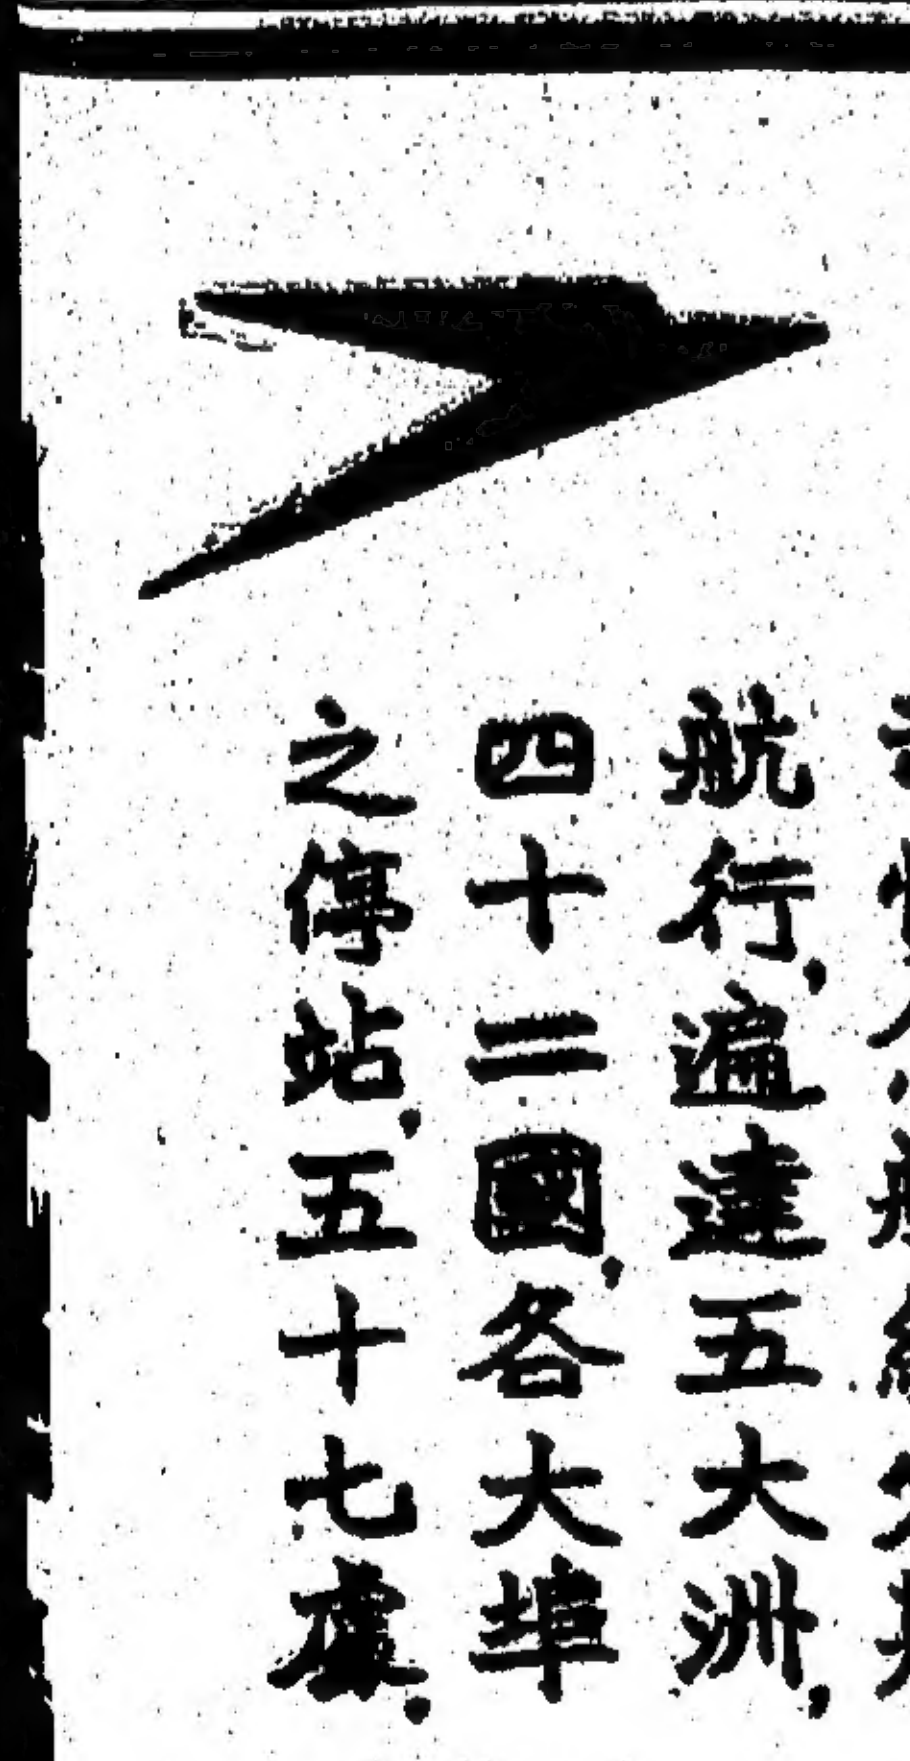 航行，遍達五大洲，
四十二國，各大埠
之停站，五十七處．